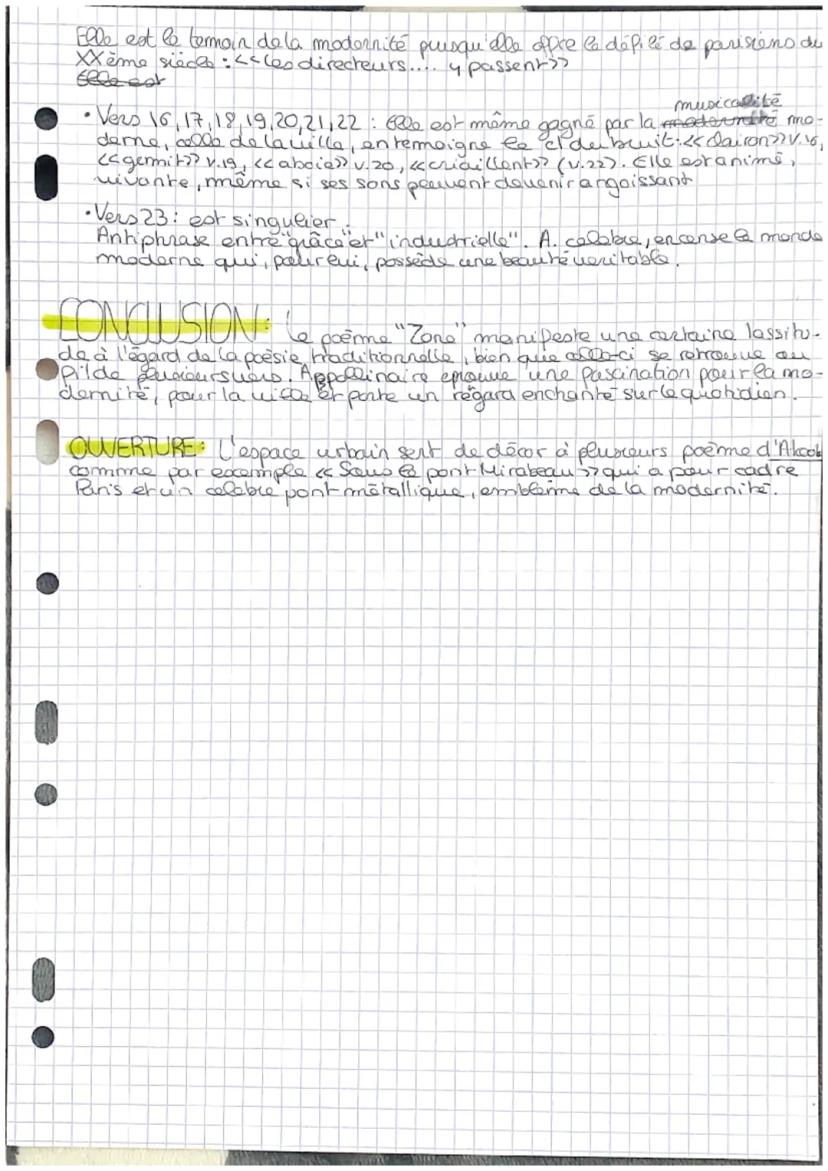 Elle est le temoin de la modernité puisqu'elle offre le défilé de parisiens du
XXème siècle : <<Les directeurs.... y passent>>
Elle est
musicalité
• Vers 16, 17, 18, 19, 20, 21, 22 : Elle est même gagné par la modernité mo-
derne, celle de la ville, en temoigne le cl du bruit : << clairon>> v.16,
<<gemit>> v.19, <<aboie>> v.20, <<criaillent>> (v.22). Elle est animé,
vivante, même si ses sons peuvent devenir angoissant
• Vers 23 : est singulier.
Antiphrase entre "grâce" et "industrielle". A. celebre, encense le monde
moderne qui, pour lui, possède une beauté veritable.
CONCLUSION : Le poème "Zone" manifeste une certaine lassitu-
de à l'égard de la poésie traditionnelle, bien que celle-ci se retrouve au
fil de plusieurs vers. Appolinaire eprouve une fascination pour la mo-
dernité, pour la ville et porte un regard enchanté sur le quotidien.
OUVERTURE : L'espace urbain sert de décor à plusieurs poème d'Alcool
comme par excemple << Sous le pont Mirabeau >> qui a pour cadre
Paris et un celebre pont métallique, emblème de la modernité.